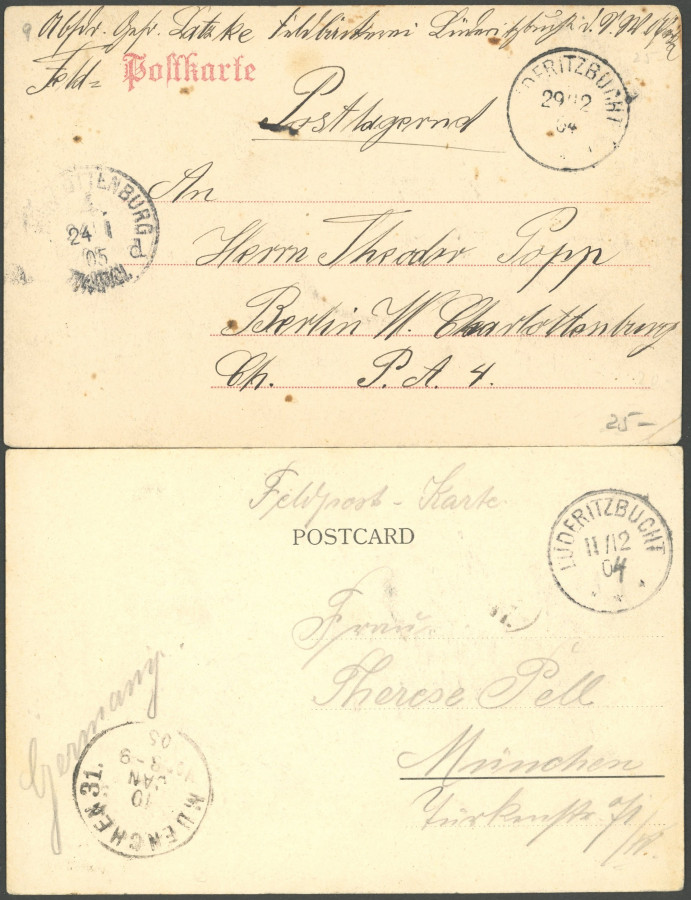 Absdr. Gefr. Latzke Feldbäckerei Lüderitzbucht d. S. W.
Feld=
Postkarte
Postlagernd
LÜDERITZBUCHT
29/12
04
CHARLOTTENBURG
24 1
05
d
An
Herrn Theodor Popp
Berlin W. Charlottenburg
Ch. P. A. 4.
25-
Feldpost-Karte
POSTCARD
LÜDERITZBUCHT
11/12
04
Frau
Therese Pell
München
Türkenstr.
Germany.
MUENCHEN 31.
10
JAN
8-9
05